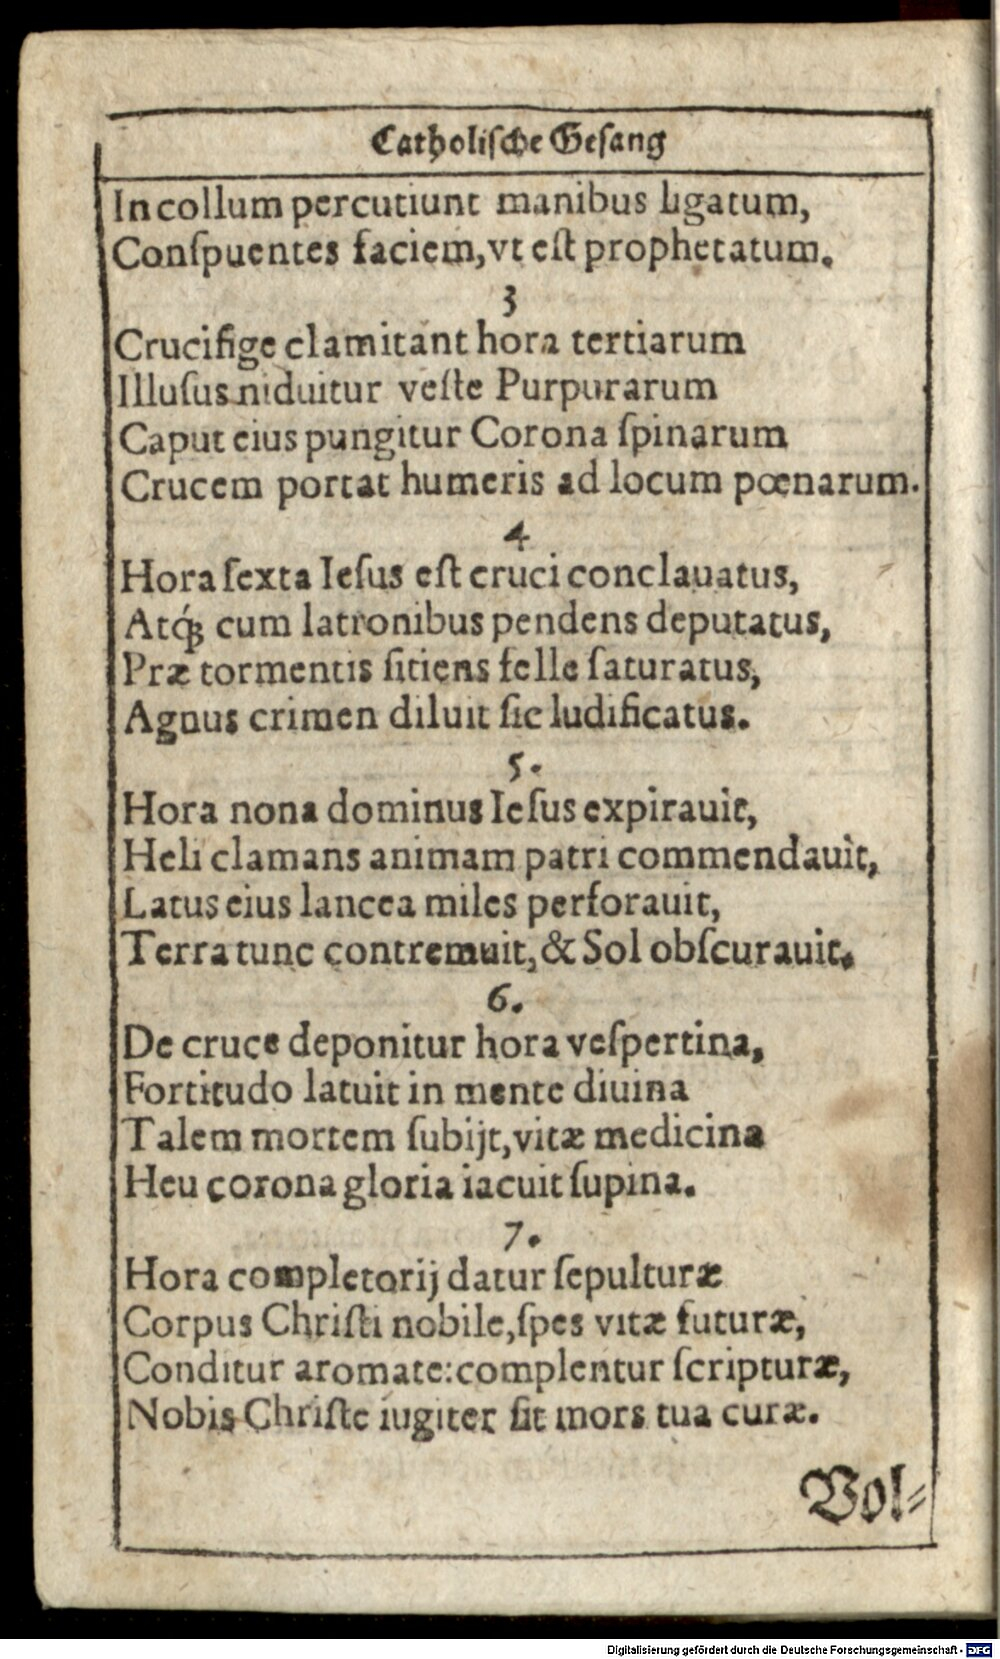 Catholiſche Geſang
In collum percutiunt manibus ligatum,
Conſpuentes faciem, vt eſt prophetatum.
3
Crucifige clamitant hora tertiarum
Illuſus niduitur veſte Purpurarum
Caput eius pungitur Corona ſpinarum
Crucem portat humeris ad locum pœnarum.
4
Hora ſexta Ieſus eſt cruci conclauatus,
Atq́ꝫ cum latronibus pendens deputatus,
Præ tormentis ſitiens felle ſaturatus,
Agnus crimen diluit ſic ludificatus.
5.
Hora nona dominus Ieſus expirauit,
Heli clamans animam patri commendauit,
Latus eius lancea miles perforauit,
Terra tunc contremuit, & Sol obſcurauit.
6.
De cruce deponitur hora veſpertina,
Fortitudo latuit in mente diuina
Talem mortem ſubijt, vitæ medicina
Heu corona gloria iacuit ſupina.
7.
Hora completorij datur ſepulturæ
Corpus Chriſti nobile, ſpes vitæ futuræ,
Conditur aromate: complentur ſcripturæ,
Nobis Chriſte iugiter ſit mors tua curæ.
Vol-
Digitalisierung gefördert durch die Deutsche Forschungsgemeinschaft - DFG